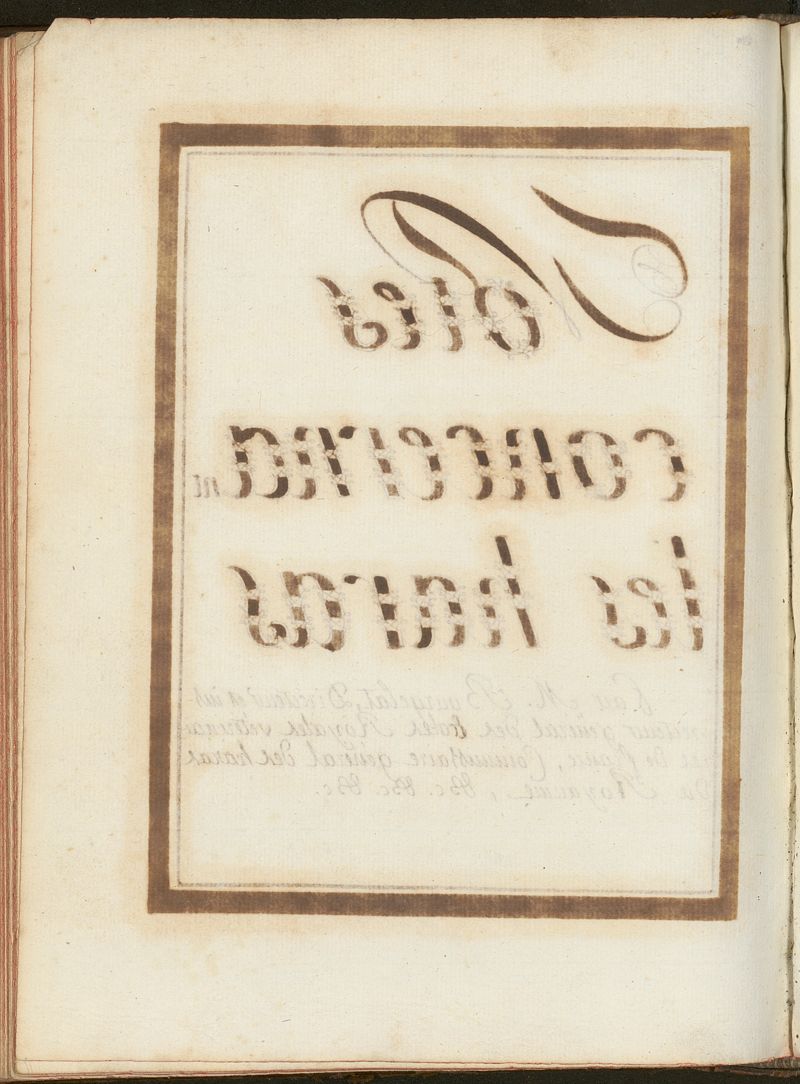 Notes
concernant
les haras
Par M. Bourgelat, Directeur et ins-
pecteur général des Ecoles Royales vétérinai-
res de France, Commissaire général des haras
du Royaume, &c. &c. &c.